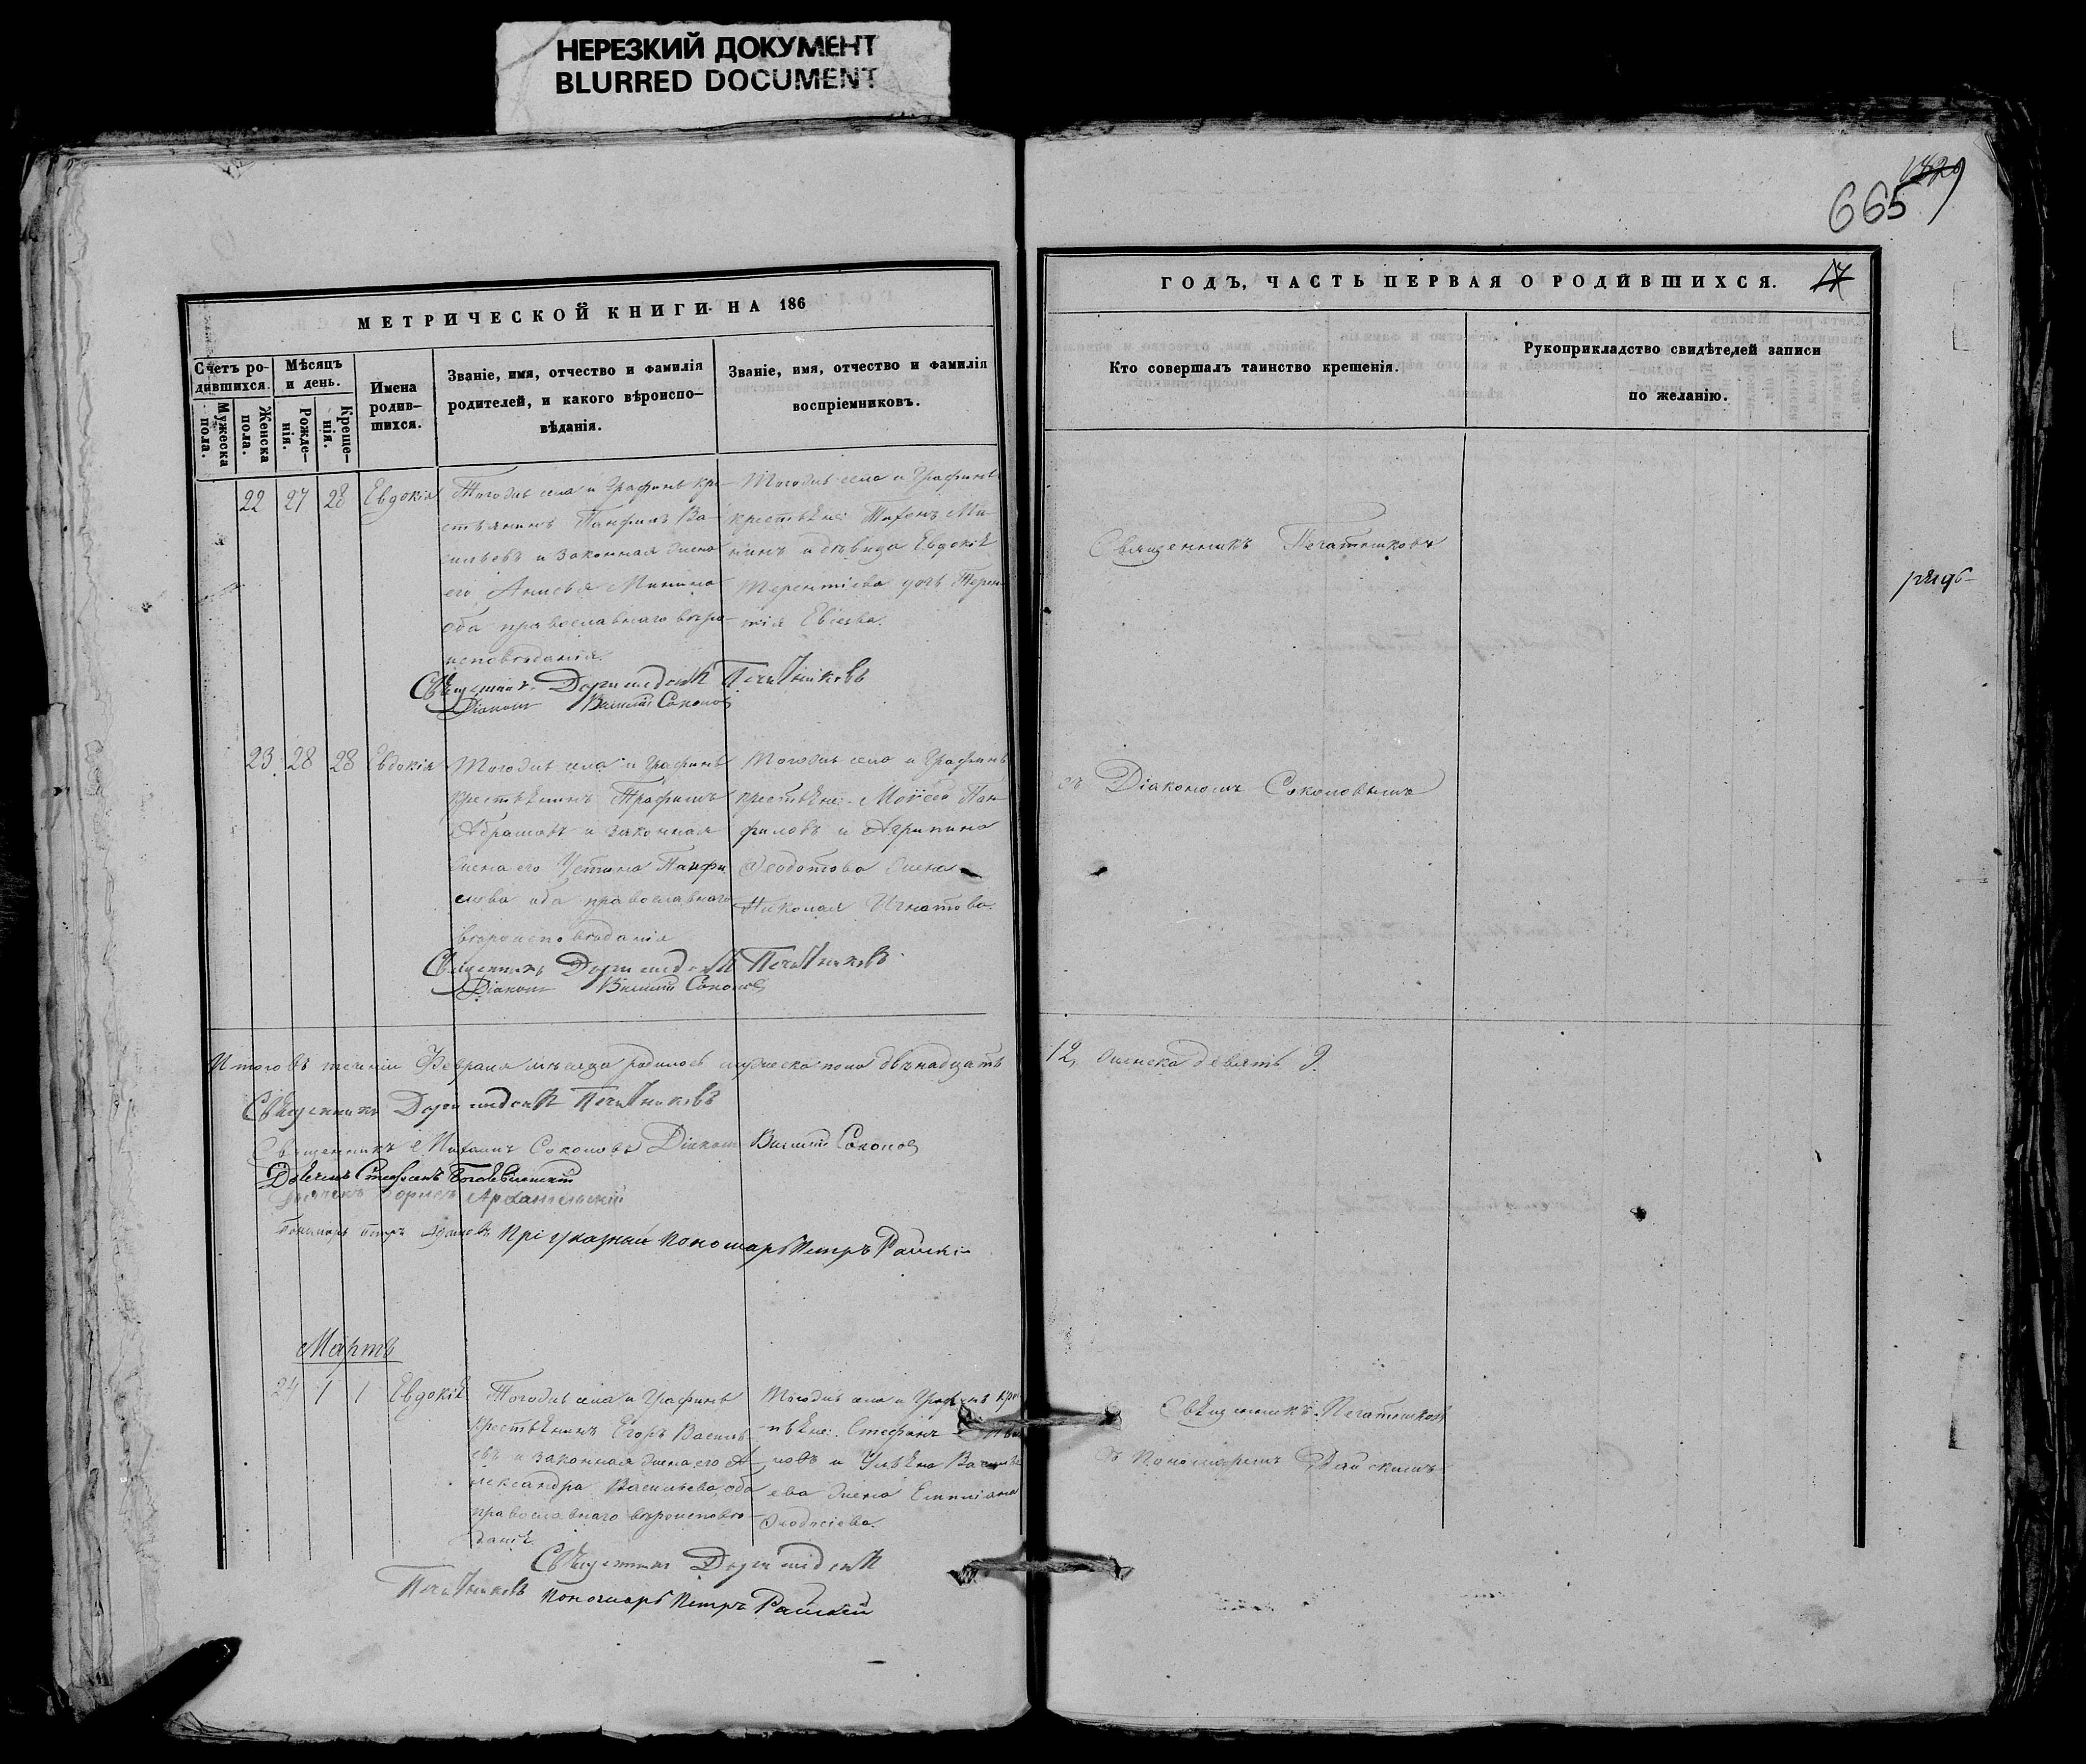 НЕРЕЗКИЙ ДОКУМЕНТ
BLURRED DOCUMENT
665
МЕТРИЧЕСКОЙ КНИГИ НА 186
Счетъ ро-
дившихся.
Мужеска
пола.
Женска
пола.
Мѣсяцъ
и день.
Рожде-
нія.
Креще-
нія.
Имена
родив-
шихся.
Званіе, имя, отчество и фамилія
родителей, и какого вѣроиспо-
вѣданія.
Званіе, имя, отчество и фамилія
воспріемниковъ.
22 27 28 Евдокія
Тогоже села и Графинѣ кре-
стьянинъ Панфилъ Ва-
сильевъ и законная жена
его Анисья Минина
оба православнаго вѣро-
исповѣданія.
Тогоже села и Графинѣ
крестьяне:
нинъ и дѣвица Евдокія
Терентіева дочь Терен-
тія Евсѣева.
Священникъ Доримедонтъ Печатниковъ
Діаконъ Василій Соколовъ
23 28 28 Евдокія
Тогоже села и Графинѣ
крестьянинъ Трофимъ
Абрамовъ и законная
жена его Устина Панфи
лова оба православнаго
вѣроисповѣданія
Тогоже села и Графинѣ
крестьяне: Моисей Пан-
филовъ и Агрипина
Ѳеодотова жена
Николая Игнатова.
Священникъ Доримедонтъ Печатниковъ
Діаконъ Василій Соколовъ
Итого въ теченіи Февраля мѣсяца родилось мужеска пола двѣнадцать
Священникъ Доримедонтъ Печатниковъ
Священникъ Михаилъ Соколовъ Діаконъ Василій Соколовъ
Дьячекъ Стефанъ Богоявленскій
Дьячекъ Борисъ Архангельскій
Пономарь Петръ
Пономарь Петръ Райскій
Мартъ
24 1 1 Евдокія
Тогоже села и Графинѣ
крестьянинъ Егоръ Василь
евъ и законная жена его А
лександра Васильева, оба
православнаго вѣроисповѣ-
данія
Тогоже села и Графинѣ кре
стьяне: Стефанъ
новъ и Ульяна Василь
ева жена Емиліана
Священникъ Доримедонтъ
Печатниковъ Пономарь Петръ Райскій
ГОДЪ, ЧАСТЬ ПЕРВАЯ О РОДИВШИХСЯ.
Кто совершалъ таинство крещенія.
Рукоприкладство свидѣтелей записи
по желанію.
Священникъ Печатниковъ
съ Діакономъ Соколовымъ
12, женска девять 9.
Священникъ Печатниковъ
съ Пономаремъ Райскимъ